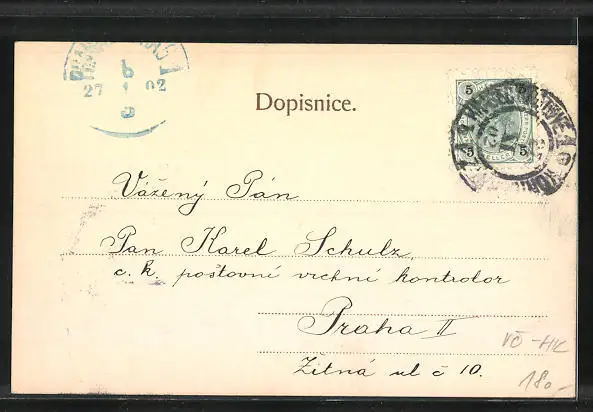 27 1 02
Dopisnice.
5 5
5 5
Vážený Pán
Pan Karel Schulz,
c. k. poštovní vrchní kontrolor
Praha II
Žitná ul č 10.
VČ - HK
180,-